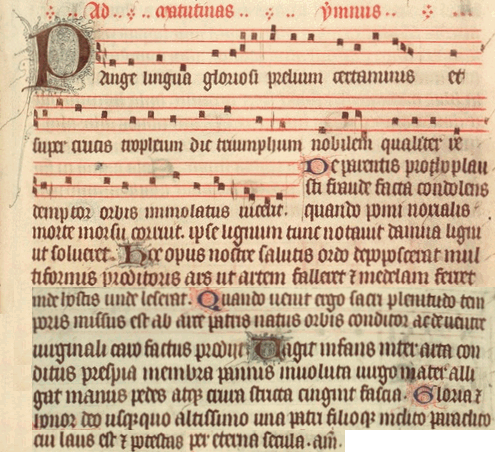 Ad matutinas ymnus
Pange lingua gloriosi prelium certaminis et
super crucis tropheum dic triumphum nobilem qualiter re
De parentis prothoplau
sti fraude facta condolens
demptor orbis immolatus vicerit. quando pomi noxialis
morte morsu corruit. ipse lignum tunc notauit damna ligni
ut solueret. Hoc opus nostre salutis ordo depoposcerat mul
tiformis proditoris ars ut artem falleret et medelam ferret
inde hostis unde leserat. Quando uenit ergo sacri plenitudo tem
poris missus est ab arce patris natus orbis conditor ac de uentre
uirginali caro factus prodiit Uagit infans inter arta con
ditus presepia membra pannis inuoluta uirgo mater alli
gat manus pedes atque crura stricta cingit fascia. Gloria et
honor deo usquequo altissimo una patri filioque inclito paraclito
cui laus est et potestas per eterna secula. am.